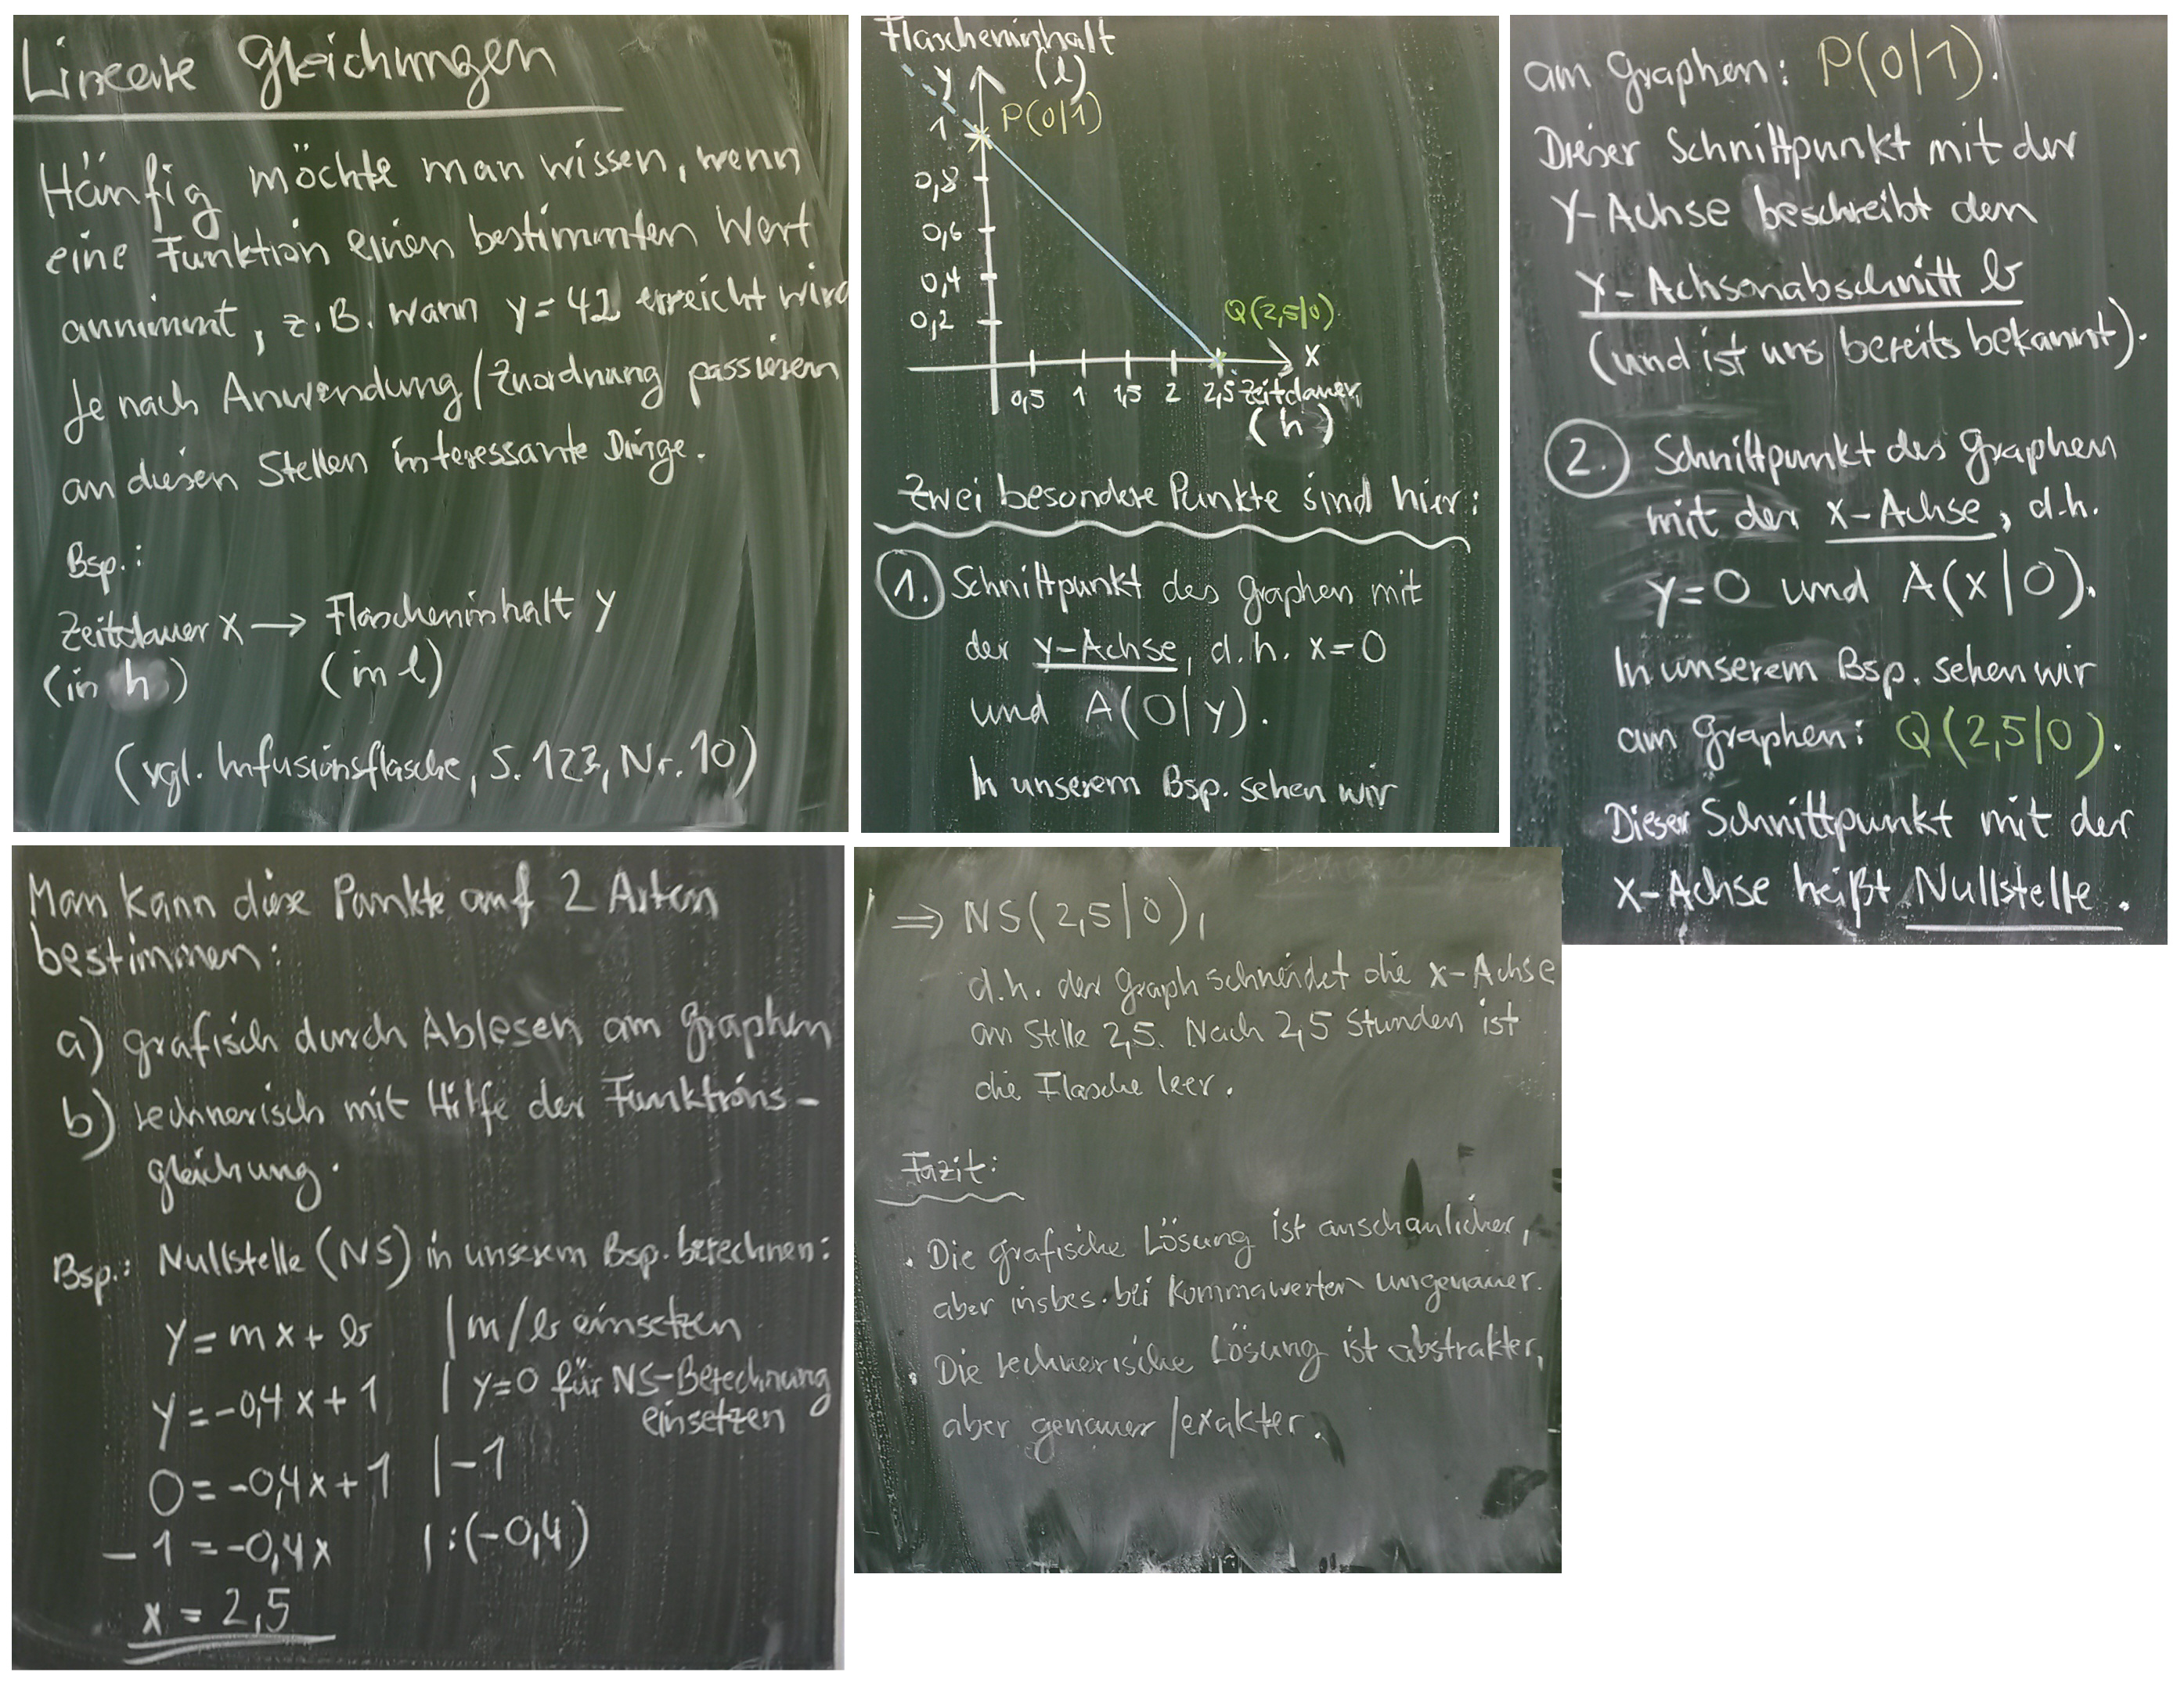 Lineare Gleichungen
Häufig möchte man wissen, wenn
eine Funktion einen bestimmten Wert
annimmt, z.B. wann y = 42 erreicht wird
Je nach Anwendung/Zuordnung passieren
an diesen Stellen interessante Dinge.
Bsp.:
Zeitdauer x → Flascheninhalt y
(in h) (in l)
(vgl. Infusionsflasche, S. 123, Nr. 10)
Flascheninhalt
y (l)
P(0|1)
1
0,8
0,6
0,4
0,2
Q(2,5|0)
x
0,5 1 1,5 2 2,5 Zeitdauer
(h)
Zwei besondere Punkte sind hier:
1. Schnittpunkt des Graphen mit
der y-Achse, d.h. x=0
und A(0|y).
In unserem Bsp. sehen wir
am Graphen: P(0|1).
Dieser Schnittpunkt mit der
Y-Achse beschreibt den
Y-Achsenabschnitt b
(und ist uns bereits bekannt).
2. Schnittpunkt des Graphen
mit der x-Achse, d.h.
y=0 und A(x|0).
In unserem Bsp. sehen wir
am Graphen: Q(2,5|0).
Dieser Schnittpunkt mit der
x-Achse heißt Nullstelle.
Man kann diese Punkte auf 2 Arten
bestimmen:
a) grafisch durch Ablesen am Graphen
b) rechnerisch mit Hilfe der Funktions-
gleichung.
Bsp.: Nullstelle (NS) in unserem Bsp. berechnen:
y = mx + b | m/b einsetzen
y = -0,4x + 1 | y=0 für NS-Berechnung
einsetzen
0 = -0,4x + 1 | -1
-1 = -0,4x | :(-0,4)
x = 2,5
⇒ NS(2,5|0),
d.h. der Graph schneidet die x-Achse
an Stelle 2,5. Nach 2,5 Stunden ist
die Flasche leer.
Fazit:
• Die grafische Lösung ist anschaulicher,
aber insbes. bei Kommawerten ungenauer.
• Die rechnerische Lösung ist abstrakter,
aber genauer/exakter.